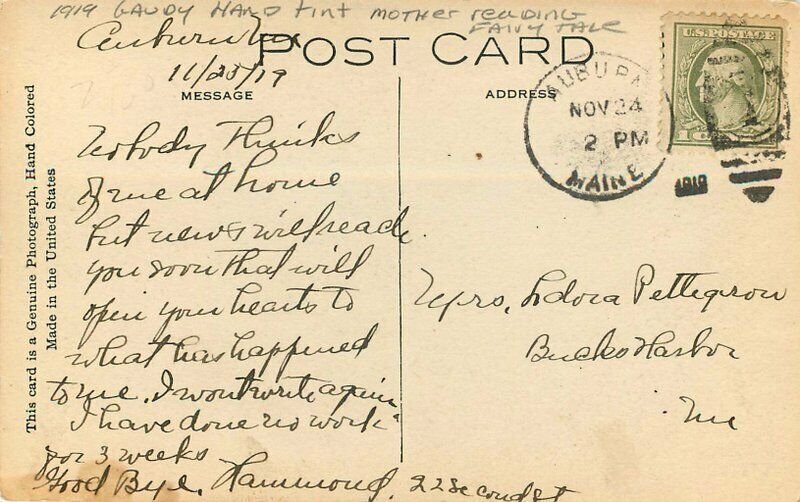 1919 GAUDY HAND TINT MOTHER READING
FAIRY TALE
Auburn Me
POST CARD
11/23/19
MESSAGE
ADDRESS
This card is a Genuine Photograph, Hand Colored
Made in the United States
Nobody Thinks
of me at home
but news will reach
you soon that will
open your hearts to
what has happened
to me. I wont write again
I have done no work
for 3 weeks
Good Bye. Hammond. 22 Second St
U.S. POSTAGE
AUBURN
NOV 24
2 PM
MAINE
1919
Mrs. Ledora Pettegrow
Bucks Harbor
Me